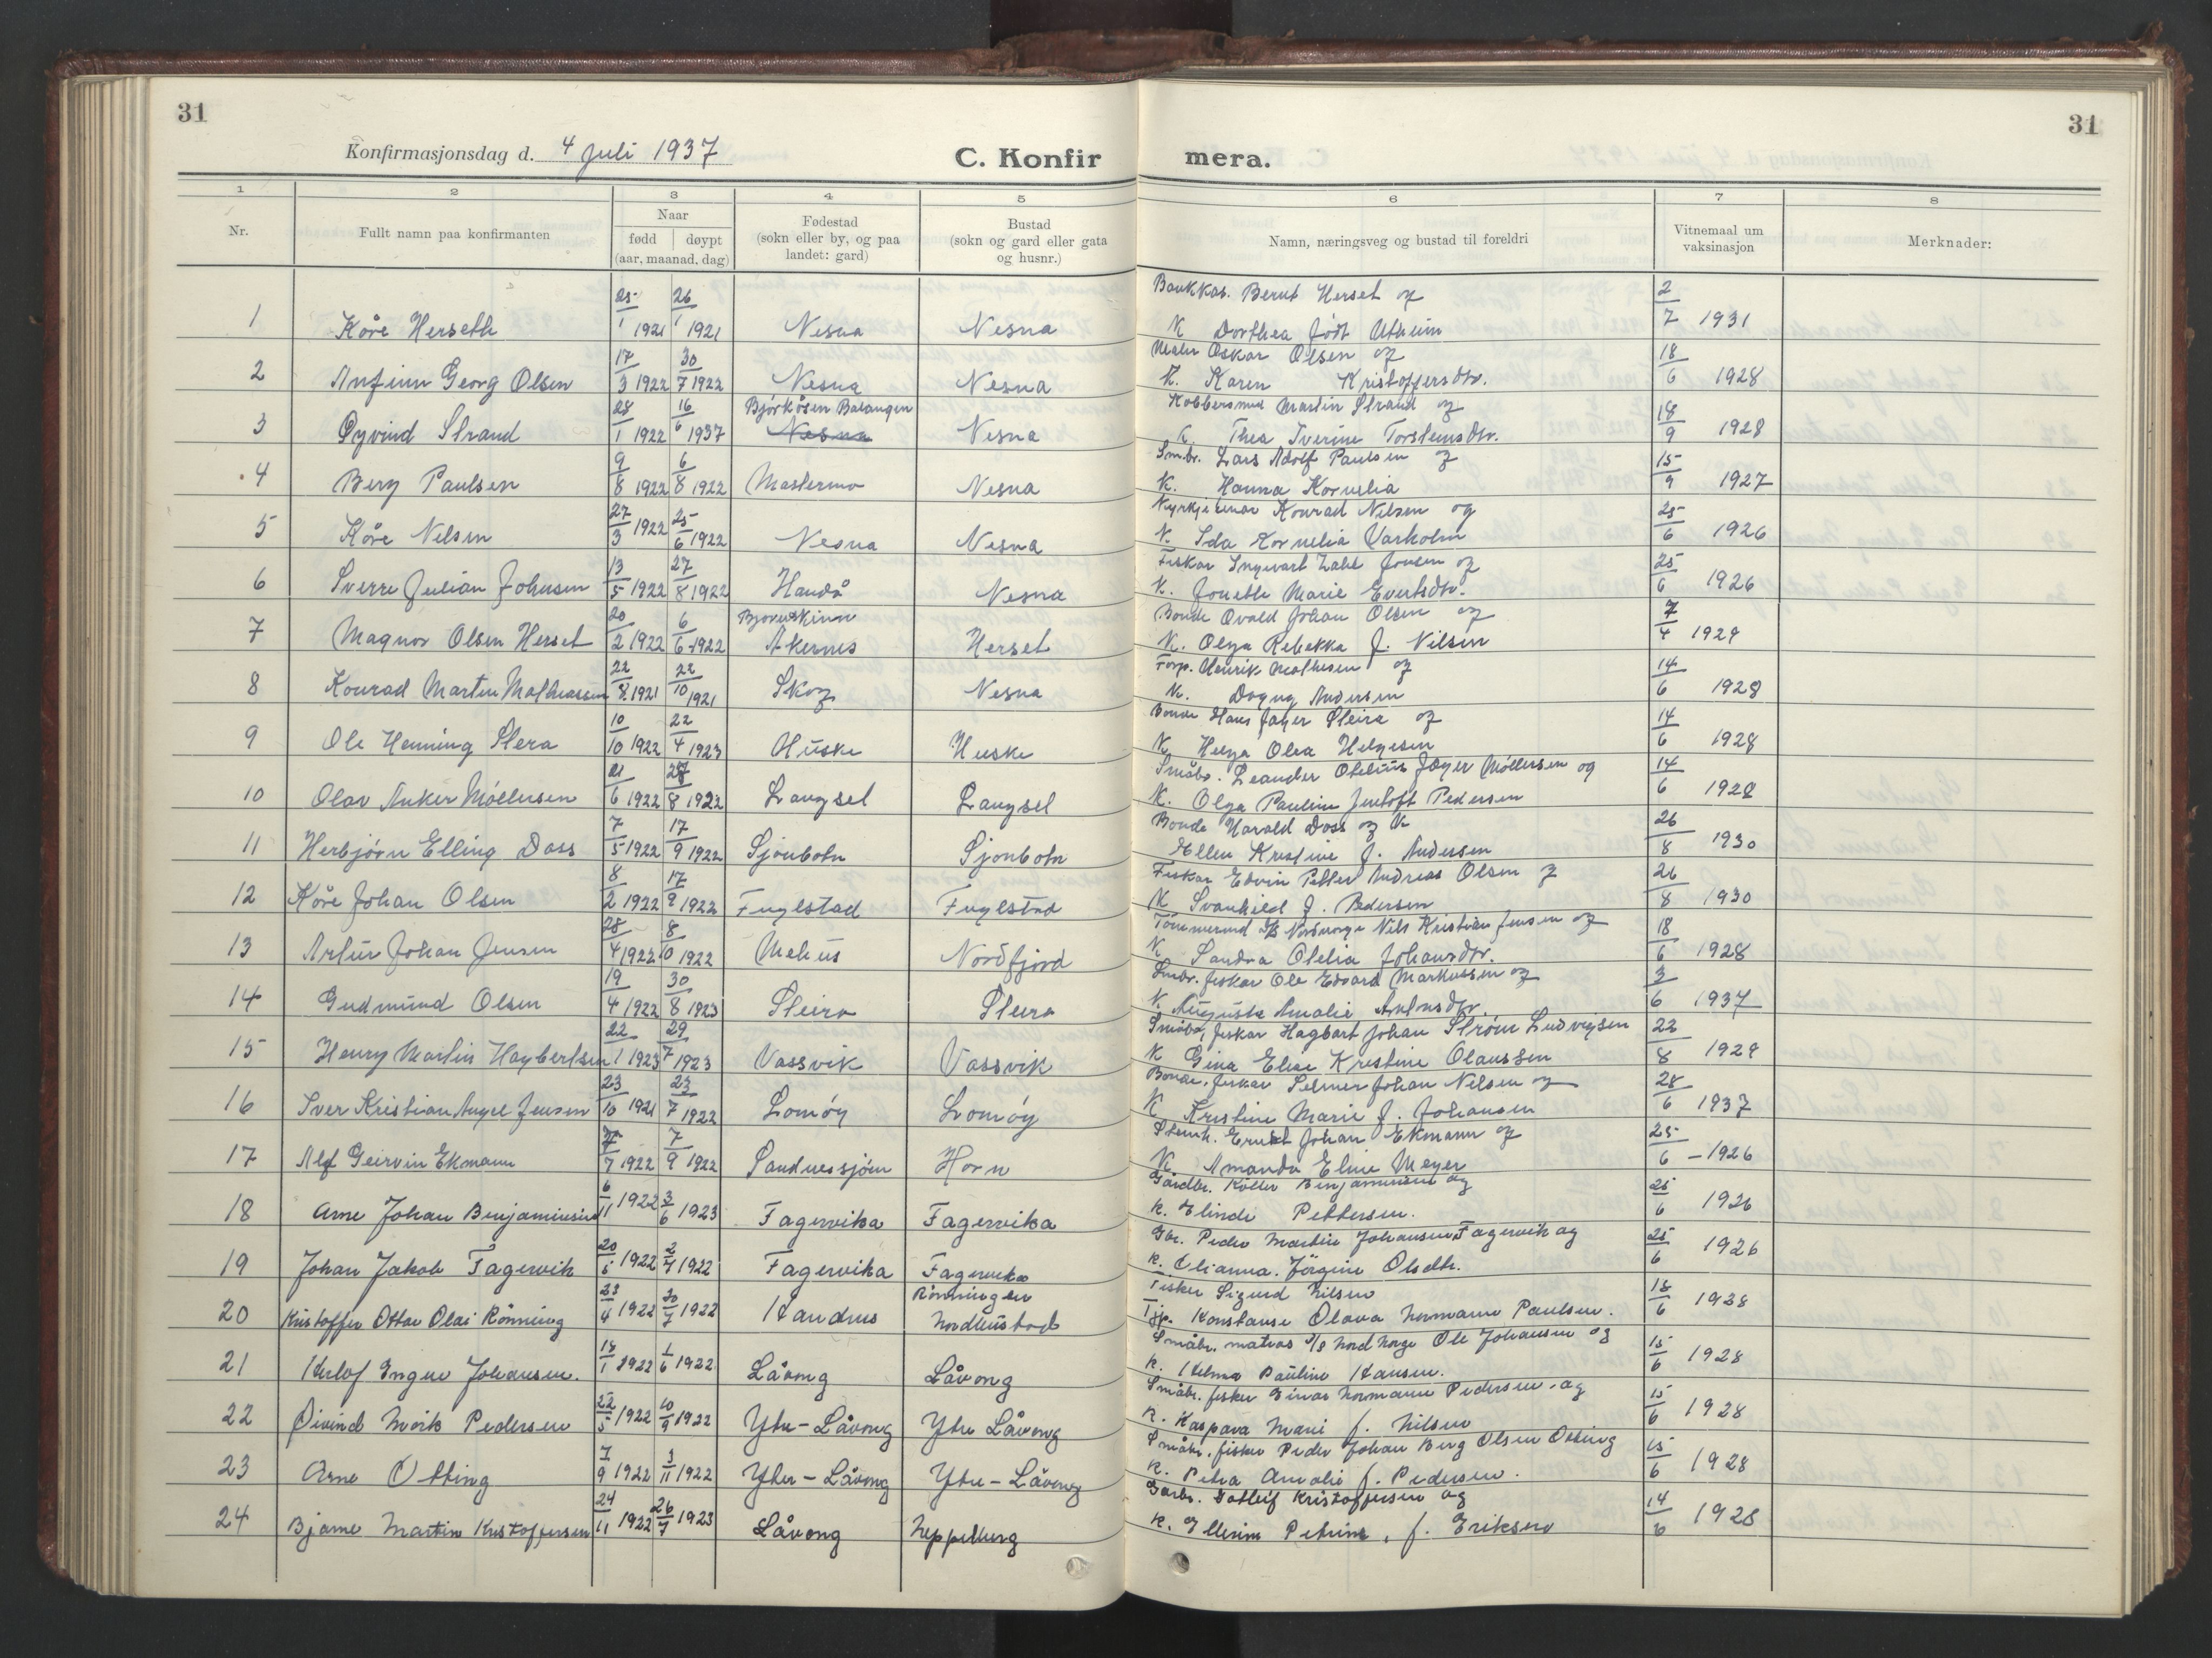 31
31
Konfirmasjonsdag d. 4 juli 1937
C. Konfir mera.
1 2 3 4 5 6 7 8
Nr.
Fullt namn paa konfirmanten
Naar
fødd døypt
(aar, maanad, dag)
Fødestad
(sokn eller by, og paa
landet: gard)
Bustad
(sokn og gard eller gata
og husnr.)
Namn, næringsveg og bustad til foreldri
Vitnemaal um
vaksinasjon
Merknader:
Bankkas. Bernt Herset og
1 Kåre Herseth 25/1 1921 26/1 1921 Nesna Nesna K Dorthea født Utheim 2/7 1931
Maler Oskar Olsen og
2 Anfinn Georg Olsen 17/3 1922 30/7 1922 Nesna Nesna K. Karen Kristoffersdtr. 18/6 1928
Bjørkåsen Balangen Kobbersmed Martin Strand og
3 Øyvind Strand 28/1 1922 16/6 1937 Nesna Nesna K. Thea Iverine Torsteinsdtr. 18/9 1928
Småbr. Lars Adolf Paulsen og
4 Berg Paulsen 9/8 1922 6/8 1922 Mastermo Nesna K. Hanna Kornelia 15/9 1927
Konrad Nilsen og
5 Kåre Nilsen 27/3 1922 25/6 1922 Nesna Nesna K. Ida Kornelia Varholm 25/6 1926
Fiskar Ingvart Zahl Jonsen og
6 Sverre Julian Johnsen 13/5 1922 27/8 1922 Handå Nesna K. Jonette Marie Evertsdtr. 25/6 1926
Bjørnskinn Bonde Ovald Johan Olsen og
7 Magnor Olsen Herset 20/2 1922 6/6 1922 Åkernes Herset K. Olga Rebekka f. Nilsen 7/4 1929
Forp. Henrik Mathisen og
8 Konrad Martin Mathiassen 22/8 1921 22/10 1921 Skog Nesna K. Dagny Andersen 14/6 1928
Bonde Hans Jager Sleira og
9 Ole Henning Slera 10/10 1922 22/4 1923 Huske Huske K Helga Olea Helgesen 14/6 1928
Småbr. Leander Otelius Jæger Møllersen og
10 Olav Anker Møllersen 21/6 1922 27/8 1922 Langsel Langsel K. Olga Pauline Jentoft Pedersen 14/6 1928
Bonde Harald Dass og K
11 Herbjørn Elling Dass 7/5 1922 17/9 1922 Sjonbotn Sjonbotn Ellen Kristine f. Andersen 26/8 1930
Fiskar Edvin Petter Andreas Olsen og
12 Kåre Johan Olsen 8/2 1922 17/9 1922 Fuglstad Fuglstad K Svanhild f. Pedersen 26/8 1930
Tømmermd D/S Nordnorge Nils Kristian Jensen og
13 Artur Johan Jensen 28/4 1922 8/10 1922 Melius Nordfjord K Sandra Otelia Johansdtr. 18/6 1928
Småbr. fiskar Ole Edvard Markussen og
14 Gudmund Olsen 19/4 1922 30/8 1923 Sleira Sleira K. Augusta Amalie Antnsdtr. 3/6 1937
Småbr, fiskar Hagbart Johan Strøm Ludvigsen
15 Henry Martin Hagbertsen 22/1 1923 29/7 1923 Vassvik Vassvik K Gina Elise Kristine Olaussen 22/8 1929
Bonde, fiskar Selmer Johan Nilsen og
16 Iver Kristian Angel Jensen 23/10 1921 23/7 1922 Lomøy Lomøy K Kristine Marie f. Johansen 28/6 1937
Ernst Johan Ekmann og
17 Alf Geirvin Ekmann 7/7 1922 7/9 1922 Sandnessjøen Horn K. Amanda Eline Meyer 25/6 - 1926
Gårdbr. Køller Benjaminsen og
18 Arne Johan Benjaminsen 6/11 1922 3/6 1923 Fagervika Fagervika K. Elinde Pettersen. 25/6 1926
Gbr. Peder Martin Johansen Fagervik og
19 Johan Jakob Fagervik 20/5 1922 2/7 1922 Fagervika Fagervika K. Olianna. Jørgine Olsdtr. 25/6 1926
Rønningen Fisker Sigurd Nilsen
20 Kristoffer Ottar Olai Rønning 23/4 1922 30/7 1922 Handnes Nordhustad Tjp. Konstanse Olava Normann Paulsen. 18/6 1928
Småbr. matros D/S Nord Norge Ole Johansen og
21 Herlof Ingvar Johansen. 18/1 1922 1/6 1922 Låvong Låvong K. Helma Pauline Hansen. 15/6 1928
Småbr. fisker Einar Normann Pedersen. og
22 Øivind Mørk Pedersen 22/5 1922 10/9 1922 Ytre-Låvong Ytre Låvong K. Kaspara Marie f. Nilsen 15/6 1928
Småbr. fisker Peder Johan Berg Olsen Otting
23 Arne Otting 7/9 1922 3/11 1922 Ytre-Låvong Ytre-Låvong K. Petra Amalie f. Pedersen. 15/6 1928
Garbr. Gotleif Kristoffersen og
24 Bjarne Martin Kristoffersen 24/11 1922 26/7 1923 Låvong Neppelberg K. Ellerine Petrine, f. Eriksen 14/6 1928